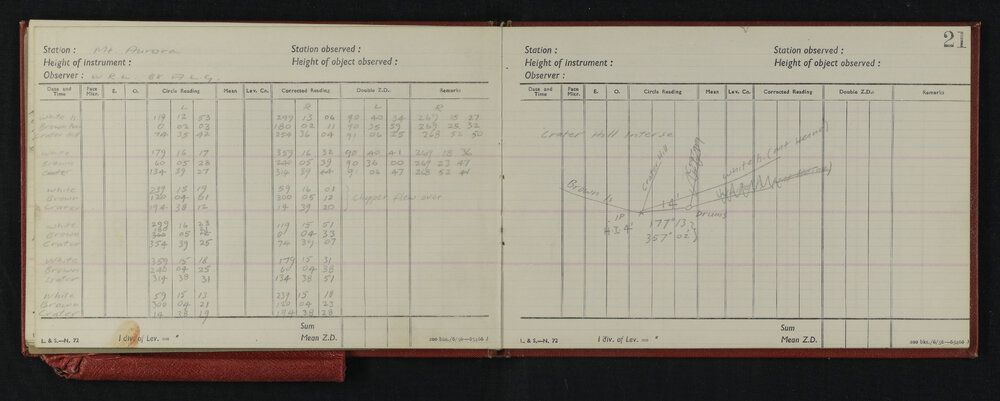 Station : Mt. Aurora Station observed :
Height of instrument : Height of object observed :
Observer : W R L
Date and Time Face Micr. E. O. Circle Reading Mean Lev. Cn. Corrected Reading Double Z.D. Remarks
L R L R
White Is 119 12 53 299 13 06 90 40 34 269 18 27
Brown 0 02 03 180 02 11 90 35 59 269 25 32
Crater Hill 74 36 42 254 36 04 91 06 25 268 52 50
White 179 16 17 359 16 32 90 40 41 269 18 36
Brown 60 05 28 240 05 39 90 36 00 269 23 47
Crater 134 39 27 314 39 91 06 47 268 52 41
White 239 15 19 59 16 01
Brown 120 04 01 300 05 12 } Chopper flew over
Crater 194 38 12 14 39 20
White 299 16 23 119 15 51
Brown 05 0 04 33
Crater 354 39 25 74 39 07
White 359 15 18 179 15 31
Brown 240 04 25 60 04 38
Crater 314 38 31 134 38 51
White 59 15 13 239 15 18
Brown 300 04 21 120 04 23
Crater 14 38 19 194 38 28
Sum
L. & S.—N. 72 1 div. of Lev. = " Mean Z.D. 200 bks./6/56—65266
21
Station : Station observed :
Height of instrument : Height of object observed :
Observer :
Date and Time Face Micr. E. O. Circle Reading Mean Lev. Cn. Corrected Reading Double Z.D. Remarks
Crater Hill Interse
Crater Hill
White Is. (not Herne)
Brown Is
14'
IP Drums
H.I 4' 177° 13' }
357° 02' }
Sum
L. & S.—N. 72 1 div. of Lev. = " Mean Z.D. 200 bks./6/56—65266